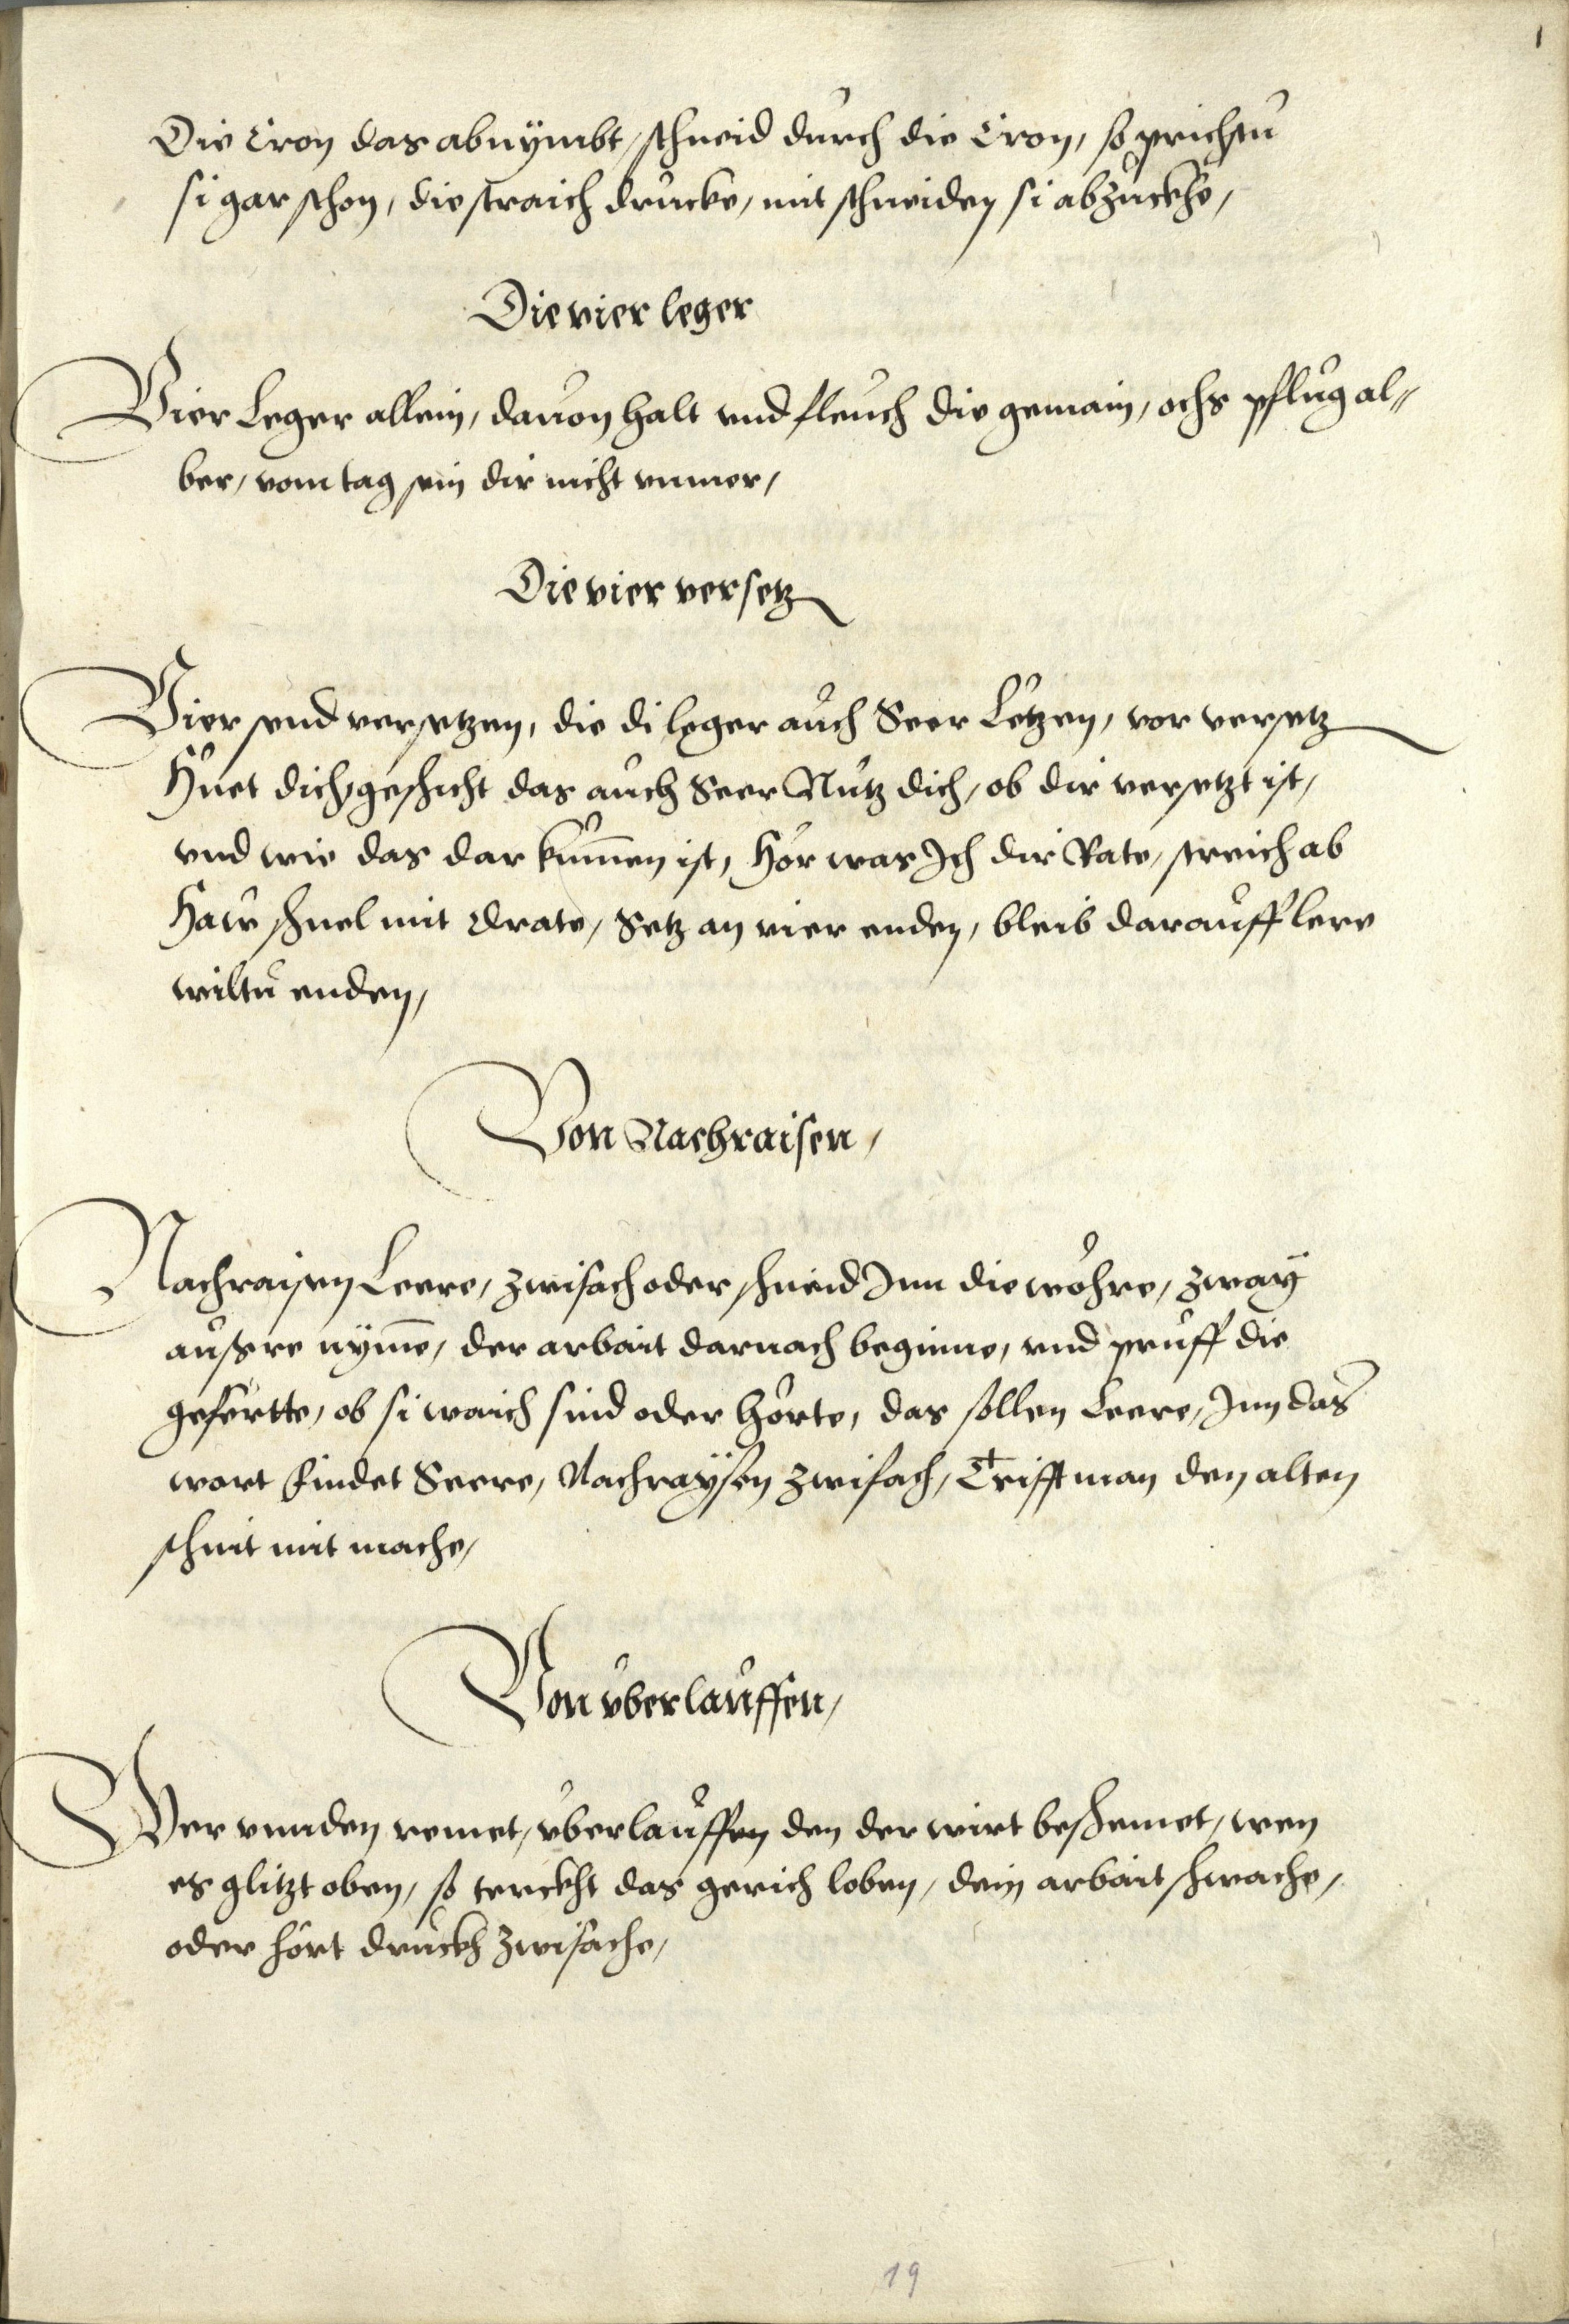 1
Die Cron das abnÿmbt, schneid durch die Cron, so prichstu
si gar schon, die straich drucke, mit schneiden si abzuckhe,
Die vier leger
Vier Leger allein, dauon halt vnd fleuch die gemain, ochs pflug al„
ber, vom tag sein dir nicht vnmer,
Die vier versetz
Vier send versetzen, die di leger auch Seer Letzen, vor versetz
Huet dich, geschicht das auch Seer Nutz dich, ob dir versetzt ist,
vnd wie das dar kum̄en ist, Hör was Ich dir Rate, streich ab
Haw schnel mit drate, Setz an vier enden, bleib darauff lere
wiltu enden,
Von Nachraisen,
Nachraisen Leere, zwifach oder schneid Inn die wöhre, zwaÿ
aussere nÿm̄e, der arbait darnach beginne, vnd prüff die
gefertte, ob si waich sind oder hörte, das fǒllen Leere, Inn das
wort findet Seere, Nachraÿsen zwifach, Trifft man den alten
schnit mit mache,
Von vberlauffen,
Wer vnnden remet, vberlauffen den der wirt beschemet, wen
es glitzt oben, so sterckht das gerich loben, dein arbait schwache,
oder hört druckh zwifache,
19